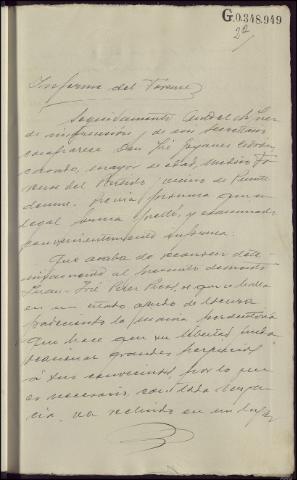 G.0.348.949
2ª
Informe del Forense
Seguidamente ante el Juez
de instrucción y de mi Secretario
comparece Don José
casado, mayor de edad, médico fo-
rense del Partido, vecino de Puente
deume. Previa promesa que en
legal forma prestó, y examinado
convenientemente informa:
Que acaba de reconocer dete-
nidamente al presunto demente
Juan José Pérez el que se halla
en un estado agudo de locura
padeciendo la manía persecutoria
que hace que su libertad pueda
ocasionar grandes perjuicios
á sus convecinos, por lo que
es necesario, con toda urgen-
cia, sea recluido en un lugar